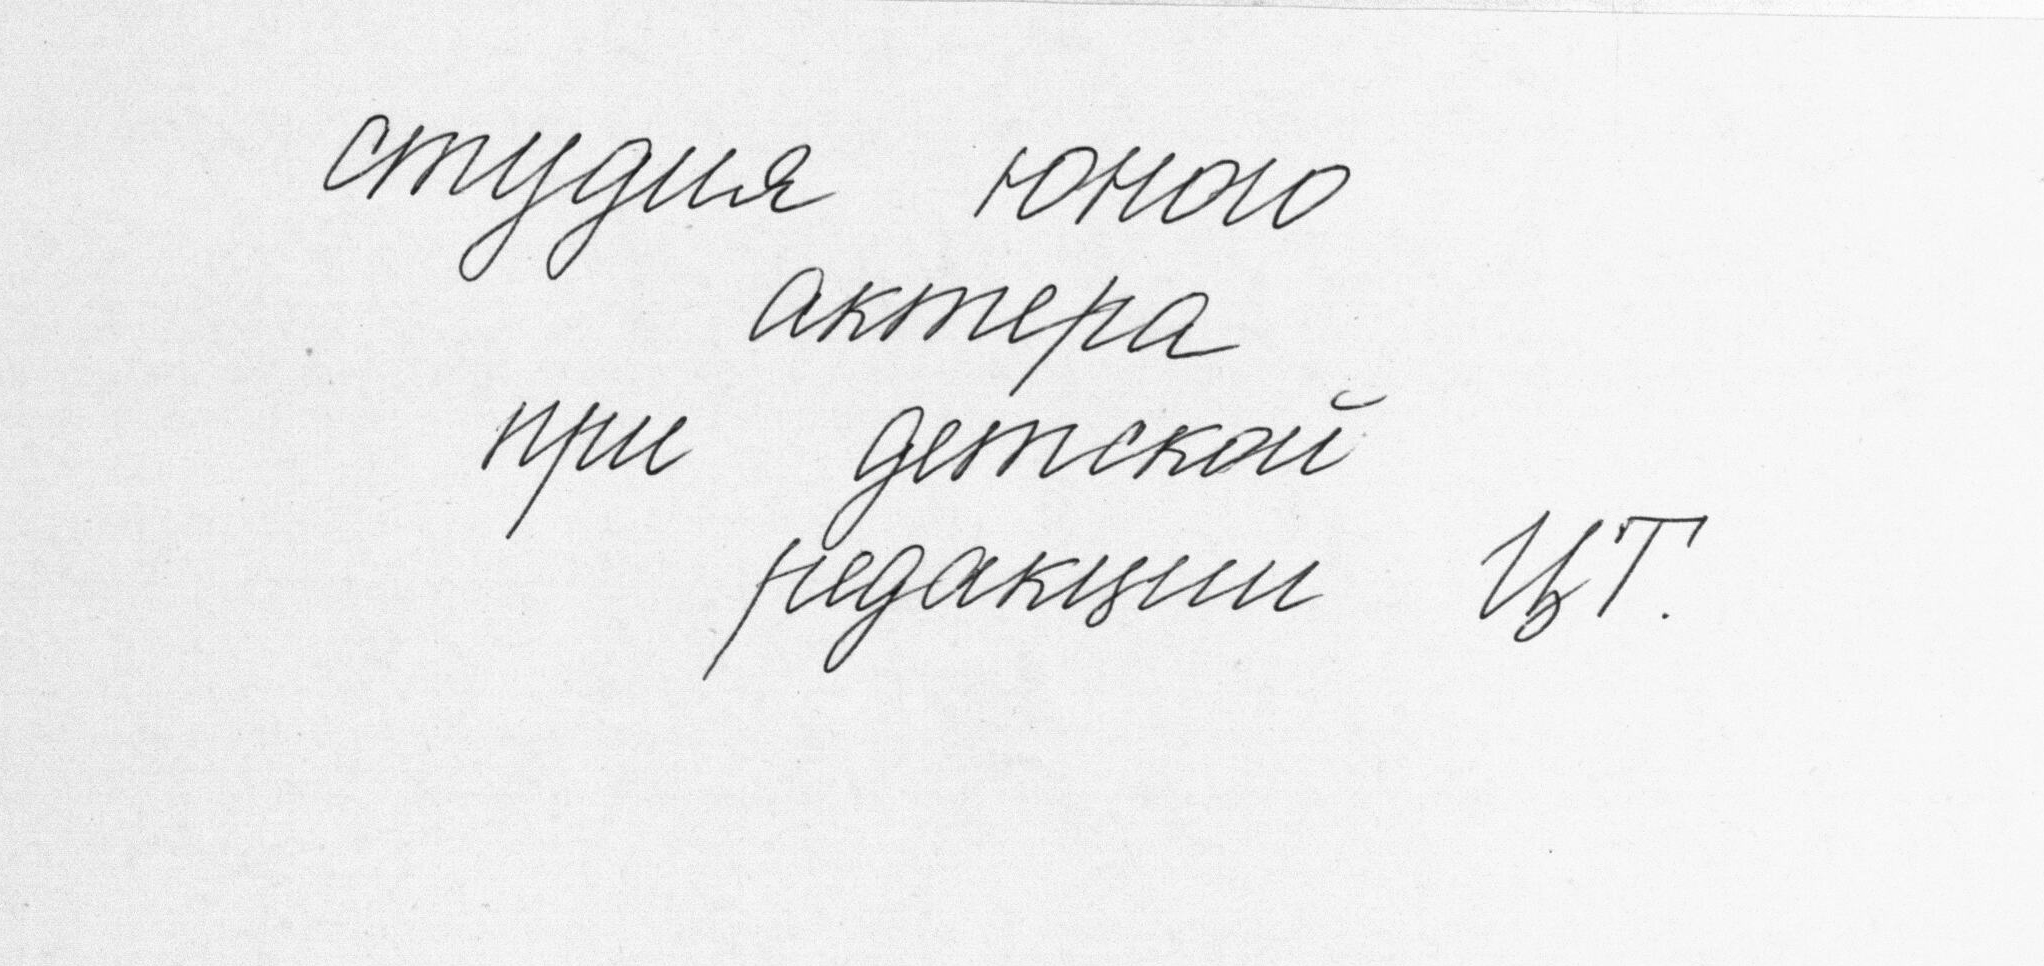 студия юного
актера
при детской
редакции ЦТ.